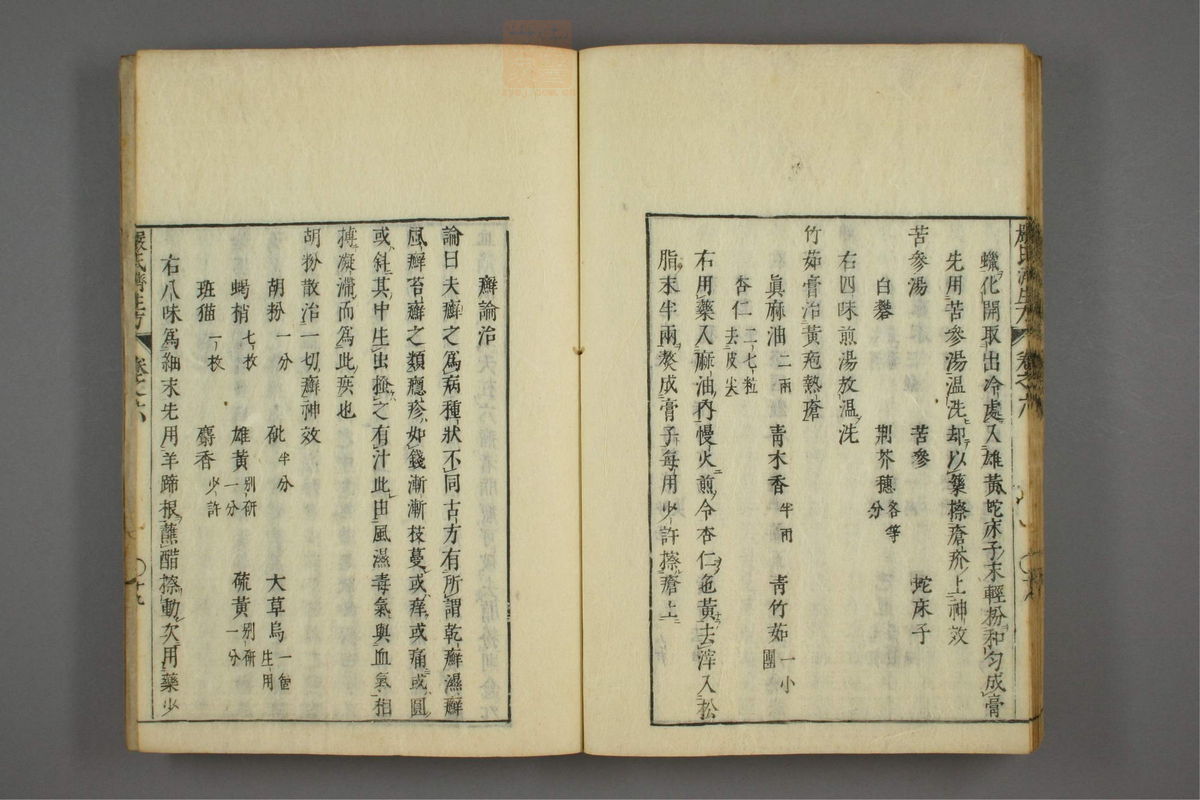 蠟化開取出冷處入雄黃蛇床子末輕粉和匀成膏
先用苦參湯温洗却以藥擦瘡疥上神效
苦參湯　苦參　蛇床子
白礬　荆芥穗各等分
右四味煎湯放温洗
竹茹膏治黃疱熱瘡
眞麻油二兩　青木香半兩　青竹茹一小團
杏仁二七粒去皮尖
右用藥入麻油內慢火煎令杏仁色黃去滓入松
脂末半兩熬成膏子每用少許擦瘡上
嚴氏濟生方　卷之六
癬論治
論曰夫癬之爲病種狀不同古方有所謂乾癬濕癬
風癬苔癬之類癮疹如錢漸漸技蔓或痒或痛或圓
或斜其中生出搔之有汁此由風濕毒氣與血氣相
搏凝滯而爲此疾也
胡粉散治一切癬神效
胡粉一分　砒半分　大草烏一箇生用
蝎梢七枚　雄黃別研一分　硫黃別研一分
班猫一枚　麝香少許
右八味爲細末先用羊蹄根蘸醋擦動次用藥少
嚴氏濟生方　卷之六　十九